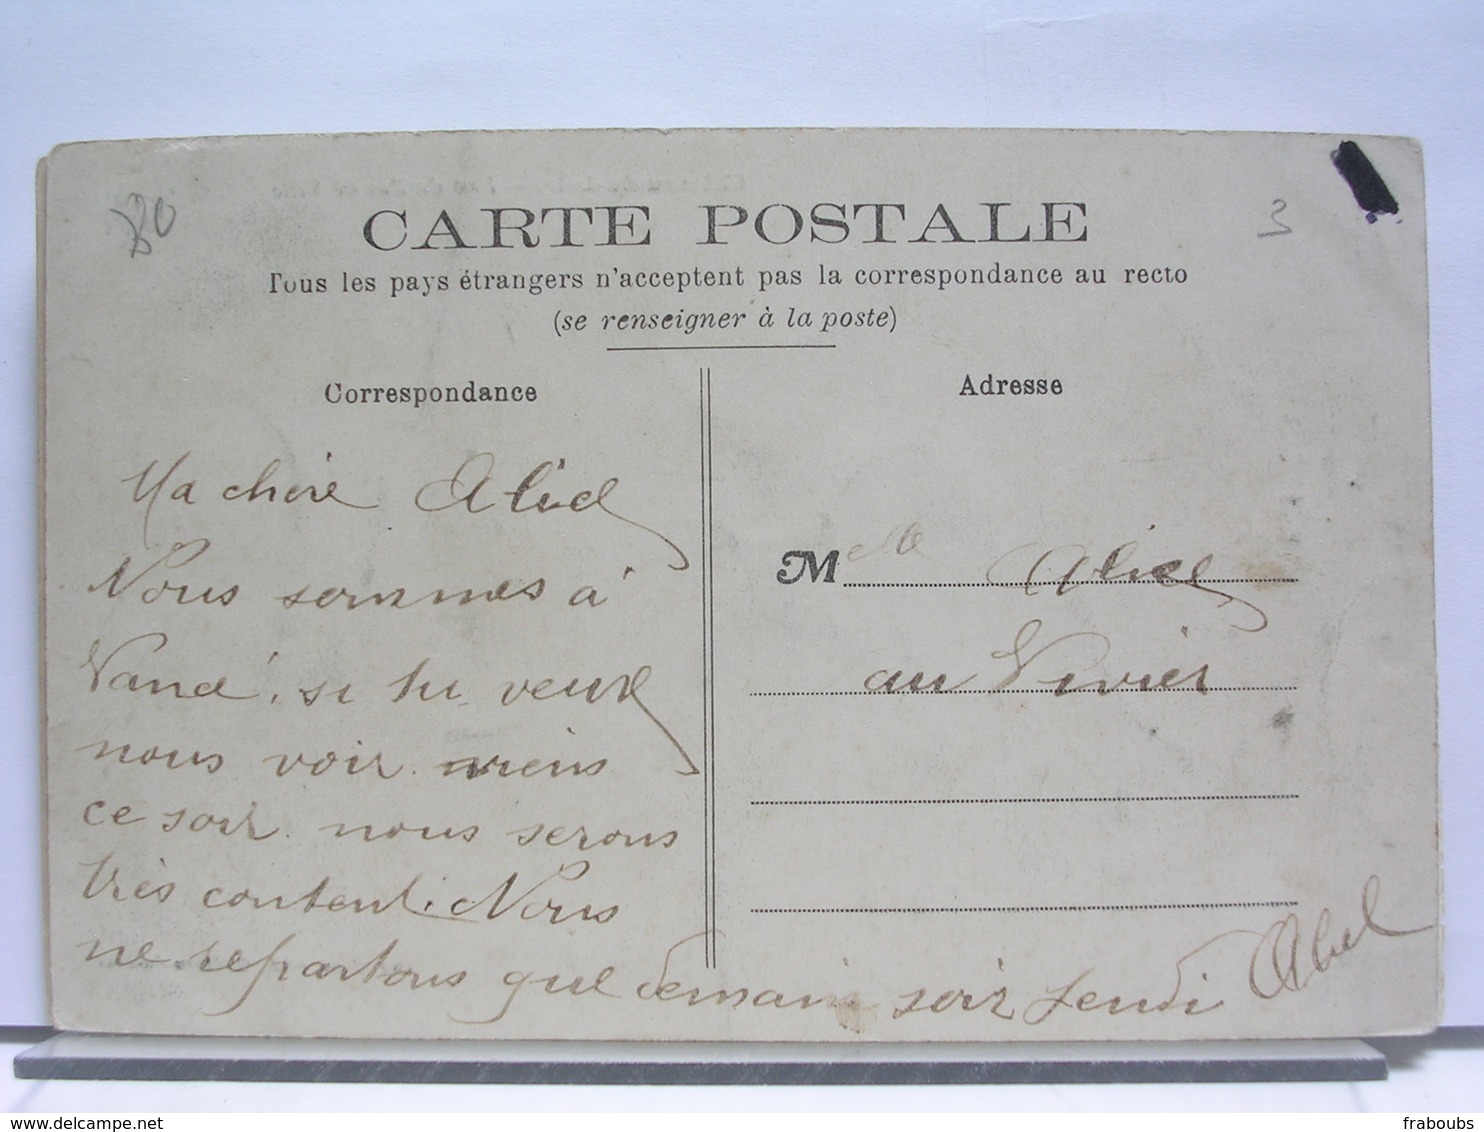 80
3
CARTE POSTALE
Tous les pays étrangers n'acceptent pas la correspondance au recto
(se renseigner à la poste)
Correspondance
Ma chère Alice
Nous sommes à
Vané, si tu veux
nous voir viens
ce soir. nous serons
très content. Nous
ne repartons que demain soir Jeudi Abel
Adresse
Melle Alice
au Vivier
fraboubs